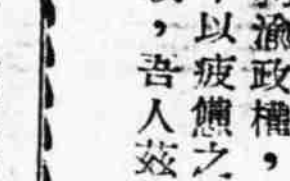 渝政權，
以疲憊之
，吾人茲